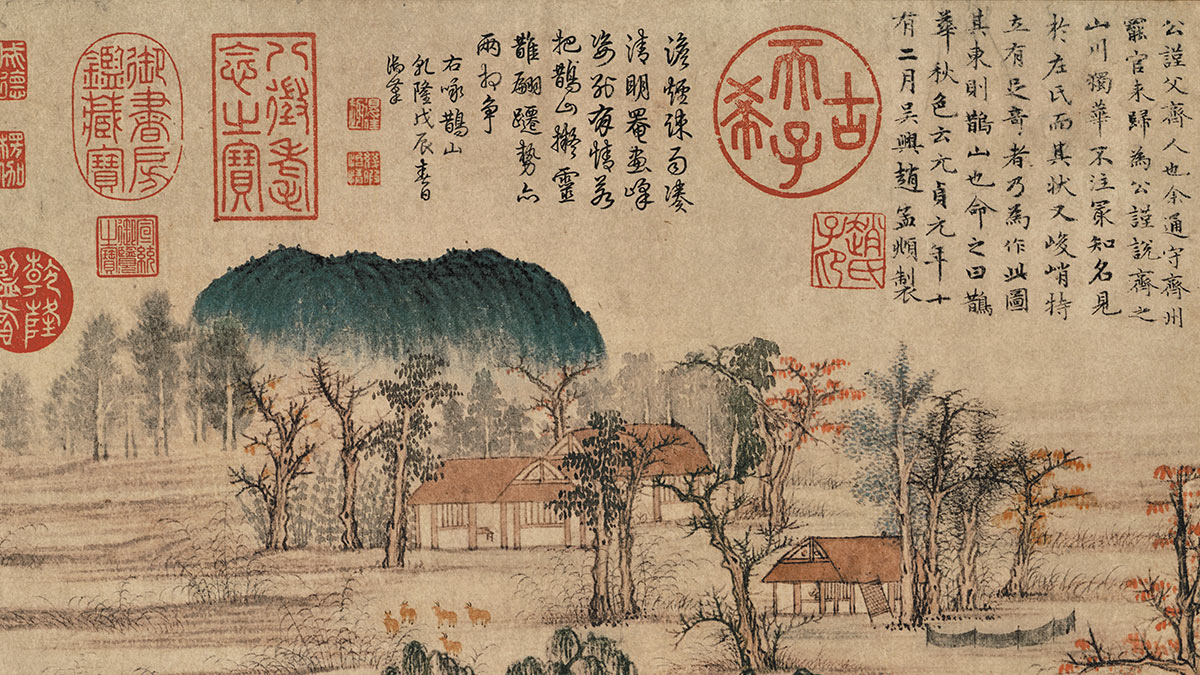 公謹父齊人也余通守齊州
罷官来歸為公謹說齊之
山川獨華不注冣知名見
於左氏而其狀又峻峭特
立有足竒者乃為作此圖
其東則鵲山也命之曰鵲
華秋色云元貞元年十
有二月吳興趙孟頫製
趙氏
子昂
古希天子
澹煙踈雨湊
清明罨畫峰
姿別有情若
把鵲山擬靈
鵲翩躚勢亦
兩相爭
右咏鵲山
乾隆戊辰春日
御筆
八徵耄
念之寶
御書房
鑑藏寶
宣統
御覽
之寶
成德
楞伽
乾隆
鑑賞